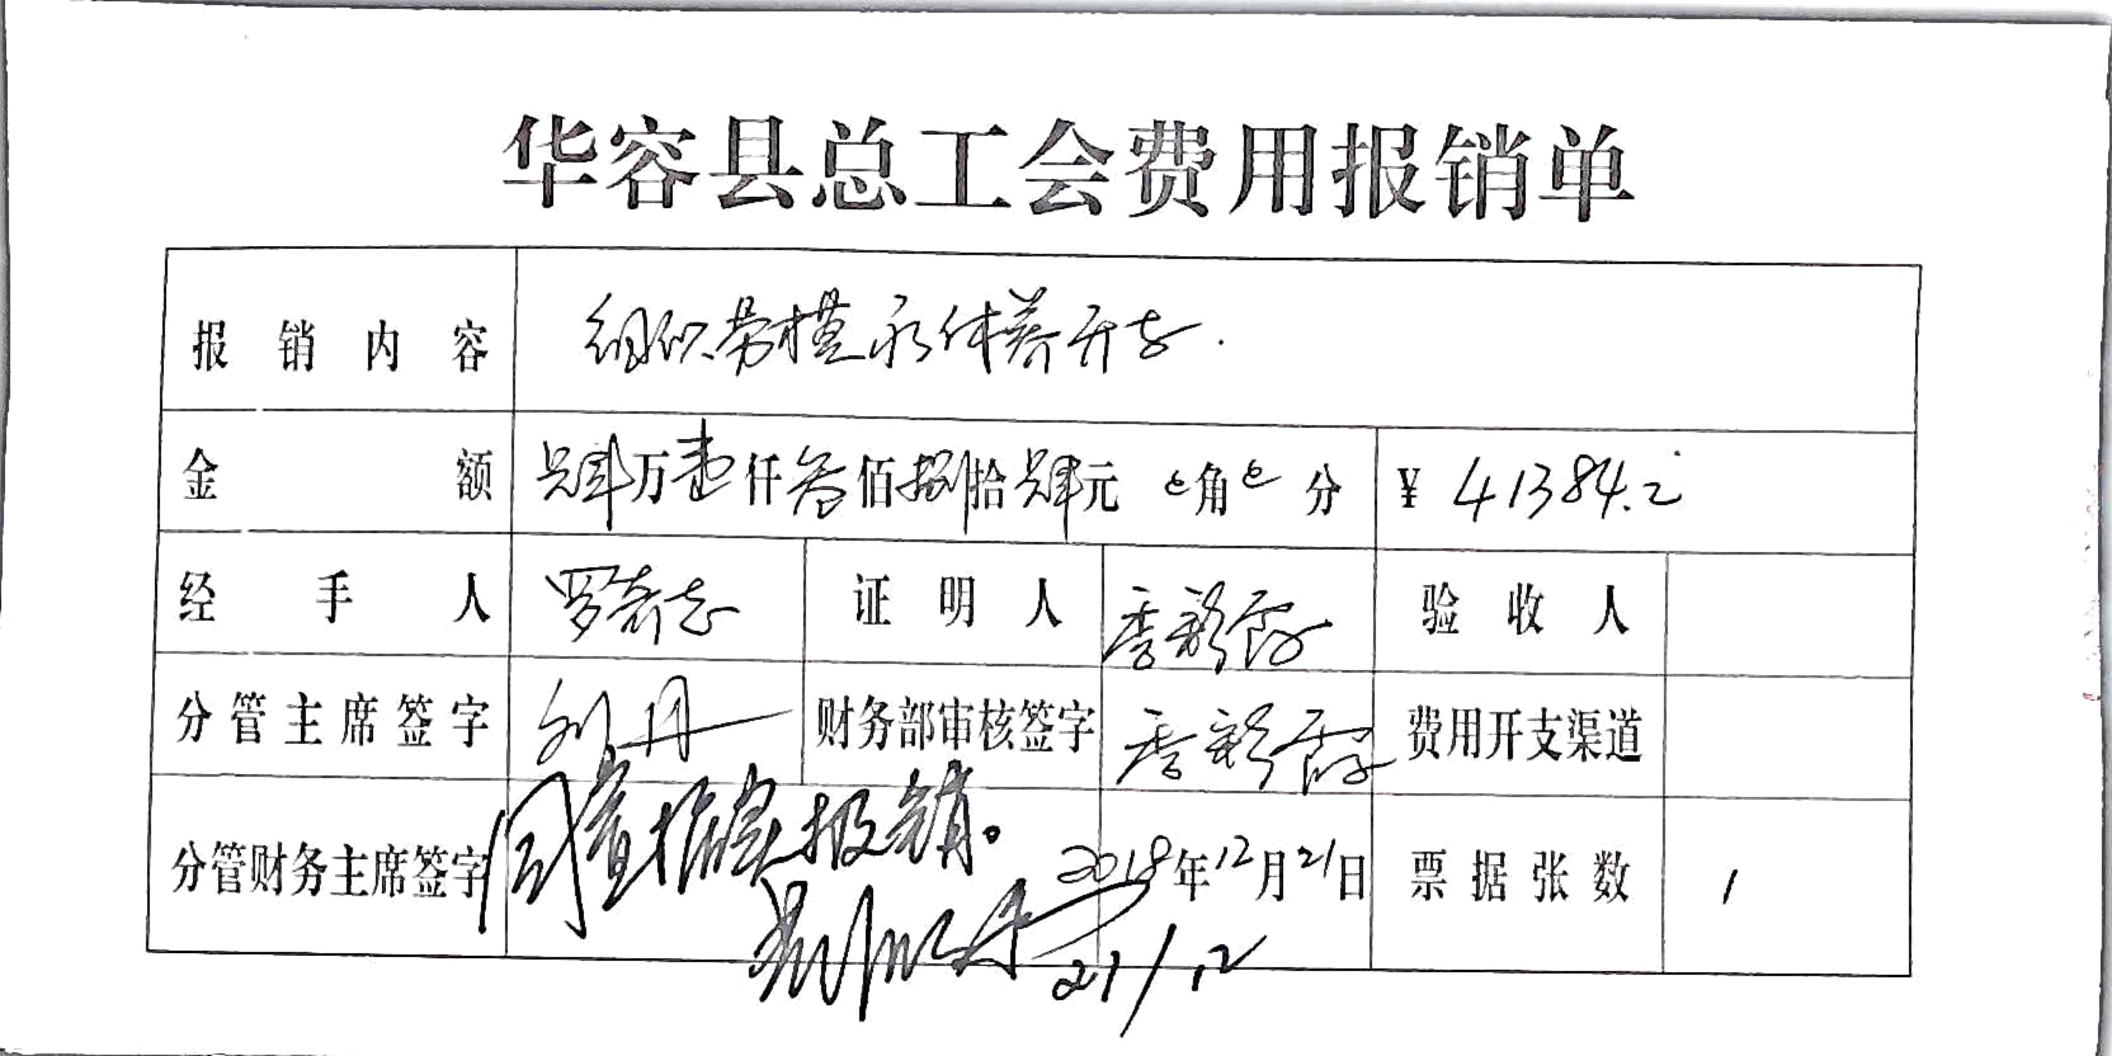 华容县总工会费用报销单
报销内容 组织劳模疗休养开支.
金额 肆万壹仟叁佰捌拾肆元 角 分 ¥ 41384.
经手人 罗 志 证明人 季 霞 验收人
分管主席签字 刘丹 财务部审核签字 季 霞 费用开支渠道
分管财务主席签字 同意据实报销。 2018年12月21日 票据张数 1
21/12